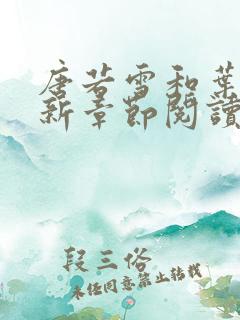 唐若雪和葉
新章節閱讀
段三俗
未经同意禁止转载